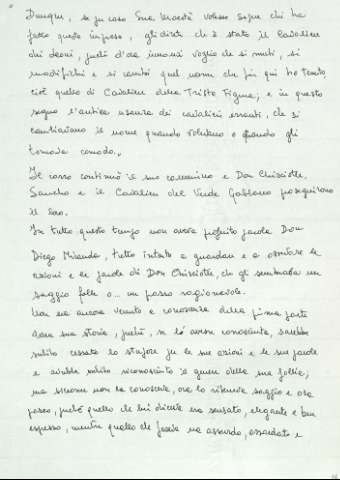 Dunque, se per caso Sua Maestà volesse sapere chi ha
fatto questa impresa, gli direte che è stato il Cavaliere
dei Leoni, perché d'ora innanzi voglio che si muti, si
modifichi e si cambi quel nome che fin qui ho tenuto
cioè quello di Cavaliere della Trista Figura; e in questo
seguo l'antica usanza dei cavalieri erranti, che si
cambiavano il nome quando volevano o quando gli
tornava comodo.
Il carro continuò il suo cammino e Don Chisciotte,
Sancho e il Cavaliere del Verde Gabbano proseguirono
il loro.
In tutto questo tempo non aveva proferito parola Don
Diego Miranda, tutto intento a guardare e a osservare le
azioni e le parole di Don Chisciotte, che gli sembrava un
saggio folle o... un pazzo ragionevole.
Non era ancora venuto a conoscenza della prima parte
della sua storia, perché, se l'avesse conosciuta, sarebbe
subito cessato lo stupore per le sue azioni e le sue parole
e avrebbe subito riconosciuto il genere della sua follia;
ma siccome non la conosceva, ora lo riteneva saggio e ora
pazzo, perché quello che lui diceva era sensato, elegante e ben
espresso, mentre quello che faceva era assurdo, azzardato e